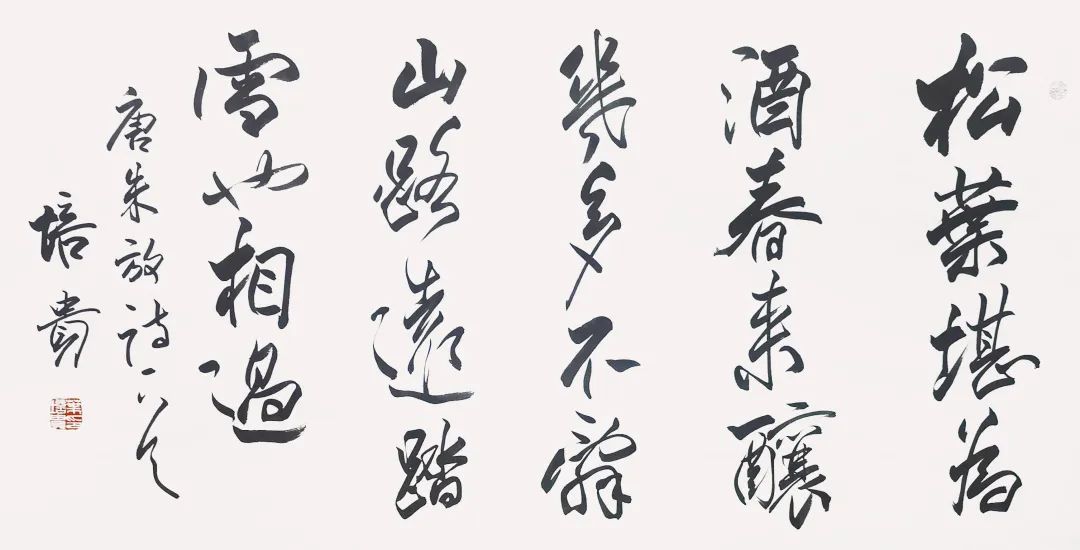 松葉堪為
酒春来釀
幾多不辭
山路遠踏
雪也相過
唐朱放詩一首
培貴